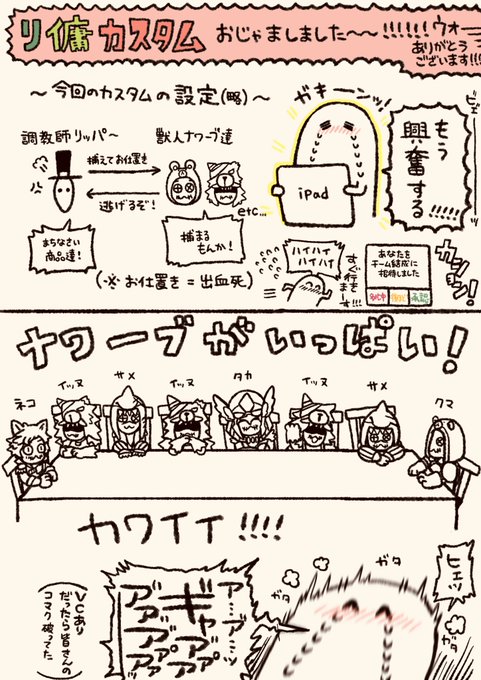 リ傭カスタム おじゃましました〜〜!!!!!! ウォー
ありがとう
ございます!!!
〜今回のカスタムの設定(略)〜
調教師リッパ〜
獣人ナワーブ達
捕まえてお仕置き
逃げるぞ!
まちなさい
商品達!
捕まる
もんか!
etc…
(※お仕置き=出血死)
ガキーンッ!
iPad
もう
興奮する
!!!!!
ハイハイ
ハイハイ
すぐ行き
ま〜す!!!
あなたを
チーム結成に
招待しました
承認
カッション!
ナワーブがいっぱい!
ネコ
イッヌ
サメ
イッヌ
タカ
イッヌ
サメ
クマ
カワイイ!!!!
VCあり
だったら皆さんの
コマク破ってた
ア…ア゛…ッ
ギャア゛ア゛
ア゛ア゛ア゛ア゛
ア゛ア゛ア゛ァァ
ガタ
ガタ
ガタ
ヒエッ